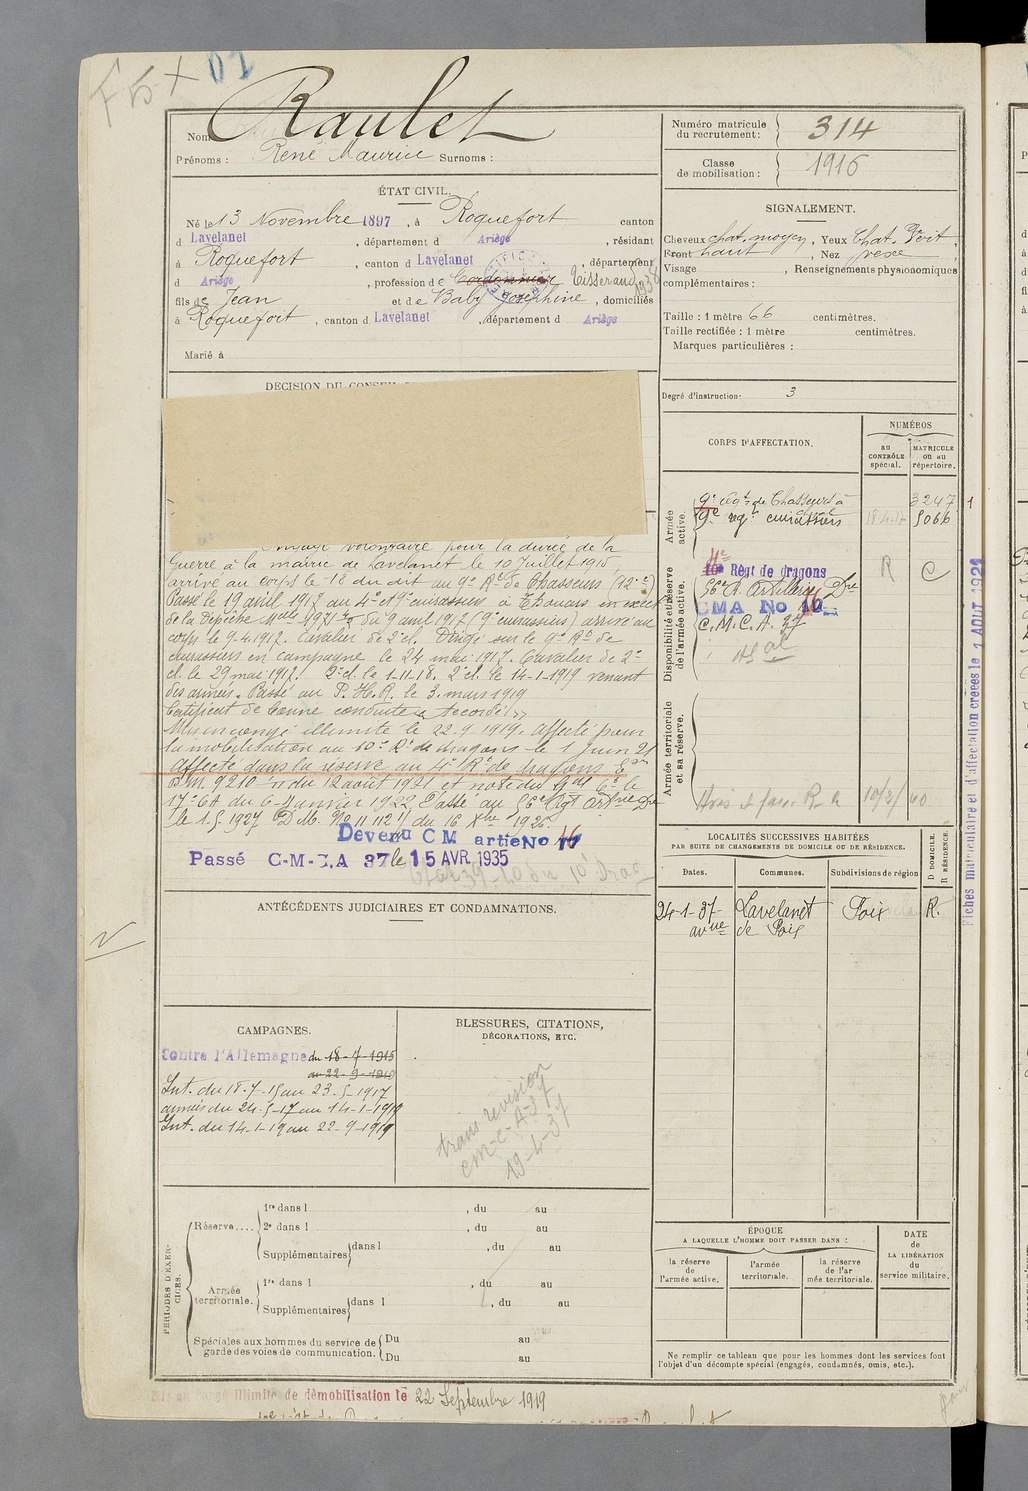 F 5 +
Raulet
Nom
Prénoms : René Maurice Surnoms :
Numéro matricule
du recrutement : 314
Classe
de mobilisation : 1916
ÉTAT CIVIL.
Né le 13 Novembre 1897, à Roquefort canton
d Lavelanet, département d Ariège, résidant
à Roquefort, canton d Lavelanet, département
d Ariège, profession de Cordonnier Tisserand
fils de Jean et de Baby Joséphine, domiciliés
à Roquefort, canton d Lavelanet, département d Ariège
Marié à
SIGNALEMENT.
Cheveux chat. moyen, Yeux Chat. Verit,
Front haut, Nez vexe,
Visage , Renseignements physionomiques
complémentaires :
Taille : 1 mètre 66 centimètres.
Taille rectifiée : 1 mètre centimètres.
Marques particulières :
Degré d'instruction : 3
DÉCISION DU CONSEIL
Engagé volontaire pour la durée de la
Guerre à la mairie de Lavelanet le 10 Juillet 1915
arrivé au corps le 18 du dit au 9e Rt de Chasseurs (12 c)
Passé le 19 avril 1917 au 4e et 9e cuirassiers à Thouars en exécut
de la Dépêche Mlle 1921 du 9 avril 1917 (9e cuirassiers) arrivé au
corps le 9.4.1917. Cavalier de 2e cl. Dirigé sur le 9e Rt de
cuirassiers en campagne le 24 mai 1917. Cavalier de 2e
cl. le 29 mai 1917. 2e cl. le 1-11-18. 2e cl. le 14-1-1919 venant
des armées. Passé au P. H. R. le 3 mars 1919
Certificat de bonne conduite "Accordé"
Mis en congé illimité le 22.9.1919. Affecté pour
la mobilisation au 10e Rt de dragons le 1 Juin 21
Affecté dans la réserve au 4e Rt de dragons
D.M. 9210 1/11 du 12 août 1921 et note du Gal Ct le
17e CA du 6 Janvier 1922. Passé au 56e Rgt Artrie Dre
le 1.5.1927 D.M. No 11112 1/1 du 16 Xbre 1926.
Devenu C M artie No 16
Passé C-M-C.A 37 le 15 AVR. 1935
CORPS D'AFFECTATION.
NUMÉROS
au
CONTRÔLE
spécial.
MATRICULE
ou au
répertoire.
Armée
active.
9e Régt de Chasseurs à cheval 3247
9e regt cuirassiers 18-4-17 5066
Disponibilité et réserve
de l'armée active.
4e
10e Régt de dragons R C
56e R. Artillerie Dre
CMA No 16
C.M.C.A. 37
Armée territoriale
et sa réserve.
10/3/40
LOCALITÉS SUCCESSIVES HABITÉES
PAR SUITE DE CHANGEMENTS DE DOMICILE OU DE RÉSIDENCE.
Dates.
Communes.
Subdivisions de région
D DOMICILE.
R RÉSIDENCE.
24-1-37 Lavelanet Foix R.
avnue de Foix
Fiches matriculaire et d'affectation créées le 1 AOUT 1921
ANTÉCÉDENTS JUDICIAIRES ET CONDAMNATIONS.
CAMPAGNES.
Contre l'Allemagne du 18-7-1915
au 22-9-1919
Int. du 18-7-15 au 23-5-1917
armées du 24-5-17 au 14-1-1919
Int. du 14-1-19 au 22-9-1919
BLESSURES, CITATIONS,
DÉCORATIONS, ETC.
trans révision
cm-c-A-37
19-4-37
PÉRIODES D'EXERCICES.
Réserve....
1re dans l , du au
2e dans l , du au
Supplémentaires dans l , du au
Armée
territoriale.
1re dans l , du au
Supplémentaires dans l , du au
Spéciales aux hommes du service de
garde des voies de communication.
Du au
Du au
ÉPOQUE
A LAQUELLE L'HOMME DOIT PASSER DANS :
la réserve
de
l'armée active.
l'armée
territoriale.
la réserve
de l'ar
mée territoriale.
DATE
de
LA LIBÉRATION
du
service militaire.
Ne remplir ce tableau que pour les hommes dont les services font
l'objet d'un décompte spécial (engagés, condamnés, omis, etc.).
Mis en congé illimité de démobilisation le 22 Septembre 1919